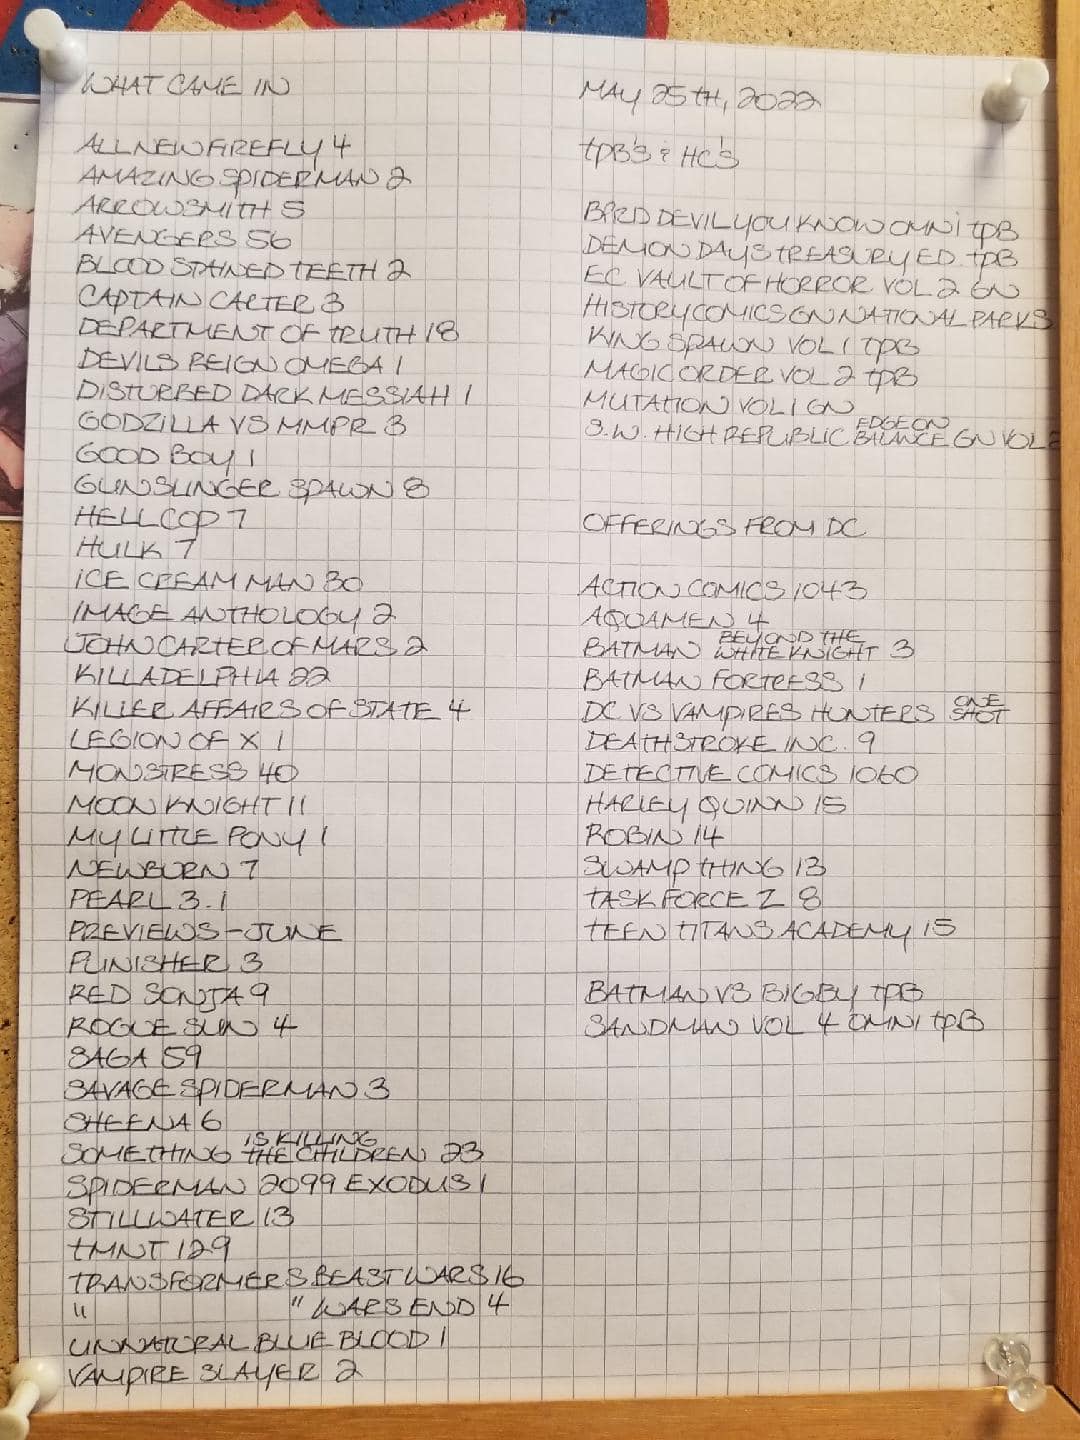 WHAT CAME IN
ALL NEW FIREFLY 4
AMAZING SPIDERMAN 2
ARROWSMITH 5
AVENGERS 56
BLOOD STAINED TEETH 2
CAPTAIN CARTER 3
DEPARTMENT OF TRUTH 18
DEVILS REIGN OMEGA 1
DISTURBED DARK MESSIAH 1
GODZILLA VS MMPR 3
GOOD BOY 1
GUNSLINGER SPAWN 8
HELLCOP 7
HULK 7
ICE CREAM MAN 30
IMAGE ANTHOLOGY 2
JOHN CARTER OF MARS 2
KILLADELPHIA 22
KILLER AFFAIRS OF STATE 4
LEGION OF X 1
MONSTRESS 40
MOON KNIGHT 11
MY LITTLE PONY 1
NEWBURN 7
PEARL 3.1
PREVIEWS - JUNE
PUNISHER 3
RED SONJA 9
ROGUE SUN 4
SAGA 59
SAVAGE SPIDERMAN 3
SHEENA 6
SOMETHING IS KILLING THE CHILDREN 23
SPIDERMAN 2099 EXODUS 1
STILLWATER 13
TMNT 129
TRANSFORMERS BEAST WARS 16
" " WARS END 4
UNNATURAL BLUE BLOOD 1
VAMPIRE SLAYER 2
MAY 25TH, 2022
TPB'S & HC'S
BPRD DEVIL YOU KNOW OMNI TPB
DEMON DAYS TREASURY ED. TPB
EC VAULT OF HORROR VOL 2 GN
HISTORY COMICS GN NATIONAL PARKS
KING SPAWN VOL 1 TPB
MAGIC ORDER VOL 2 TPB
MUTATION VOL 1 GN
S.W. HIGH REPUBLIC EDGE ON BALANCE GN VOL 2
OFFERINGS FROM DC
ACTION COMICS 1043
AQUAMEN 4
BATMAN BEYOND THE WHITE KNIGHT 3
BATMAN FORTRESS 1
DC VS VAMPIRES HUNTERS ONE SHOT
DEATHSTROKE INC. 9
DETECTIVE COMICS 1060
HARLEY QUINN 15
ROBIN 14
SWAMP THING 13
TASK FORCE Z 8
TEEN TITANS ACADEMY 15
BATMAN VS BIGBY TPB
SANDMAN VOL 4 OMNI TPB